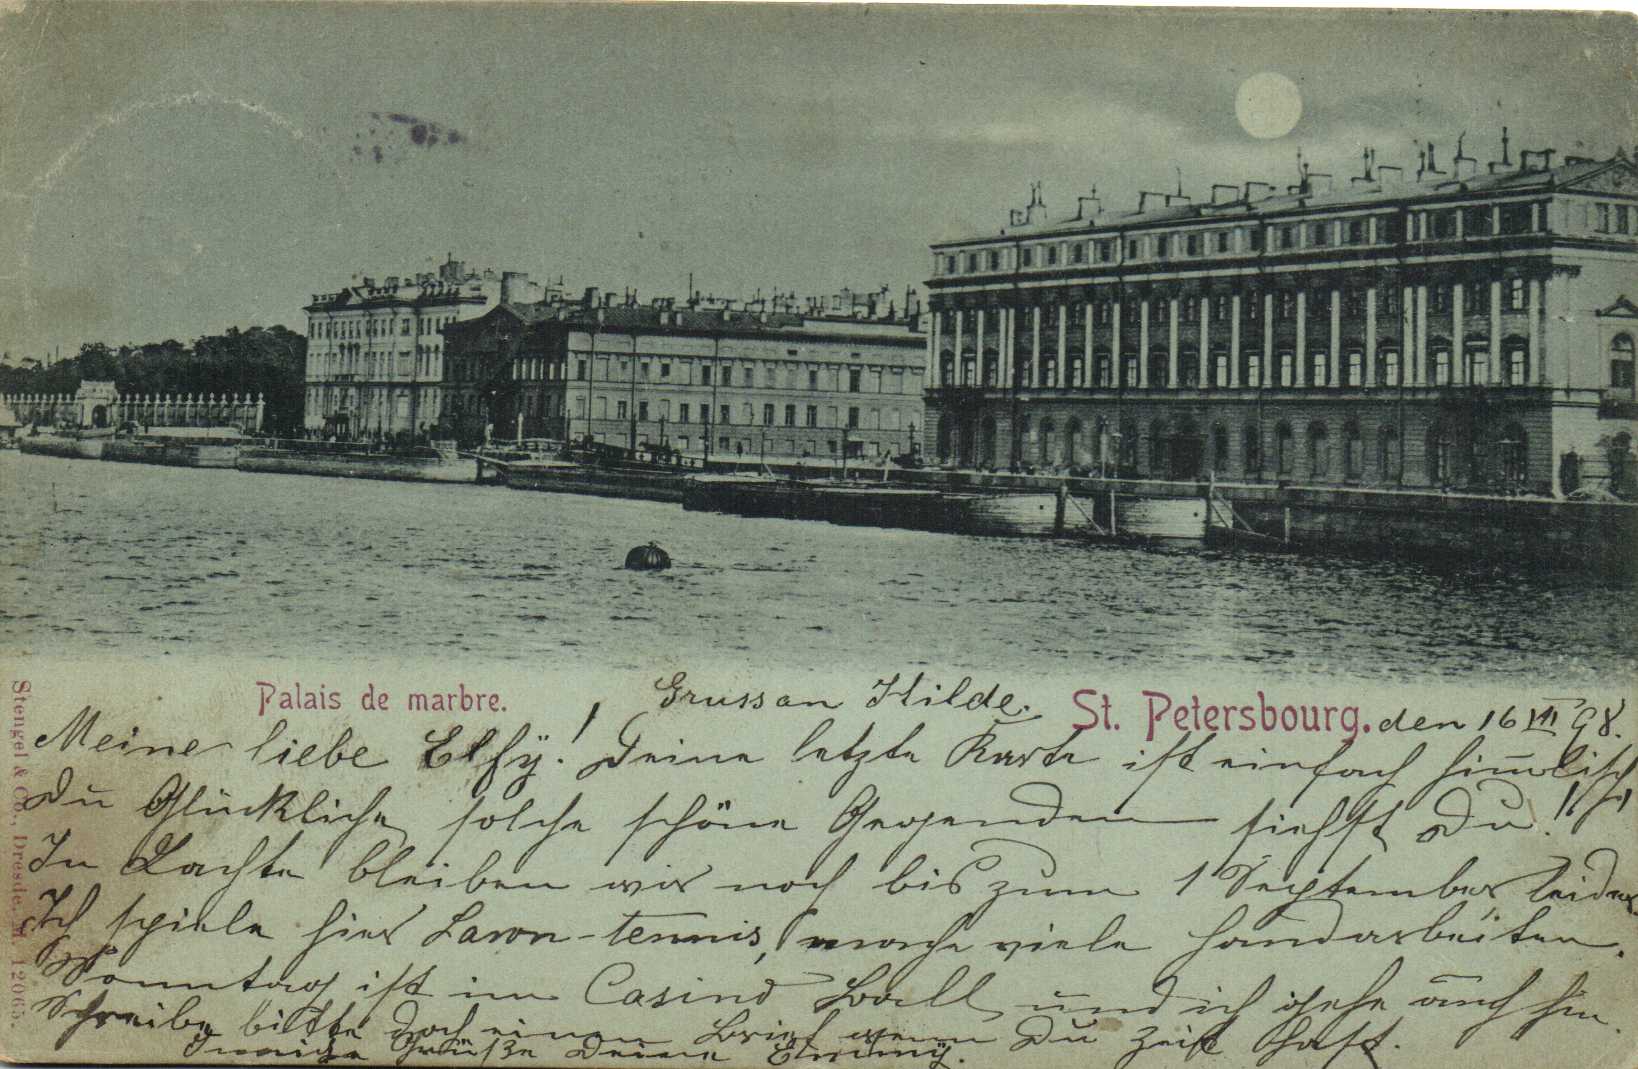 Palais de marbre.
Gruss an Hilde.
St. Petersbourg. den 16 VIII 98.
Meine liebe Elfÿ! Deine letzte Karte ist einfach himmlisch!
Du Glückliche solche schöne Gegenden siehst Du!
In Lachta bleiben wir noch bis zum 1 September leider.
Ich spiele hier Lawn-tennis, mache viele Handarbeiten.
Sonntag ist im Casino Ball und ich gehe auch hin.
Schreibe bitte doch einen Brief wenn Du Zeit hast.
Innige Grüße Deine Emmÿ.
Stengel & Co., Dresde. M. 12065.